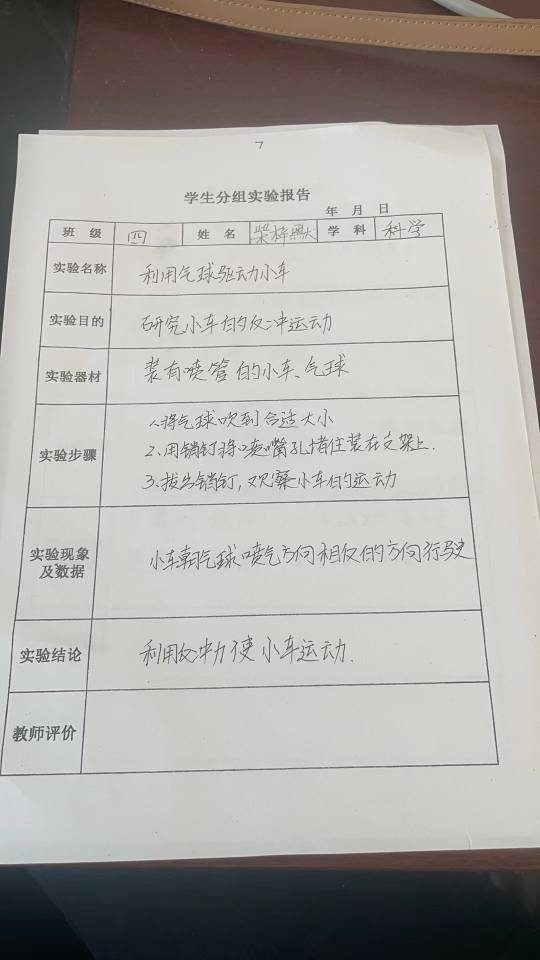 7
学生分组实验报告
年 月 日
班 级 四 姓 名 柴梓熙 学 科 科学
实验名称 利用气球驱动小车
实验目的 研究小车的反冲运动
实验器材 装有喷管的小车、气球
实验步骤
1、将气球吹到合适大小
2、用销钉将喷嘴孔堵住装在支架上.
3、拔出销钉,观察小车的运动
实验现象
及数据
小车朝气球喷气方向相反的方向行驶
实验结论 利用反冲力使小车运动.
教师评价